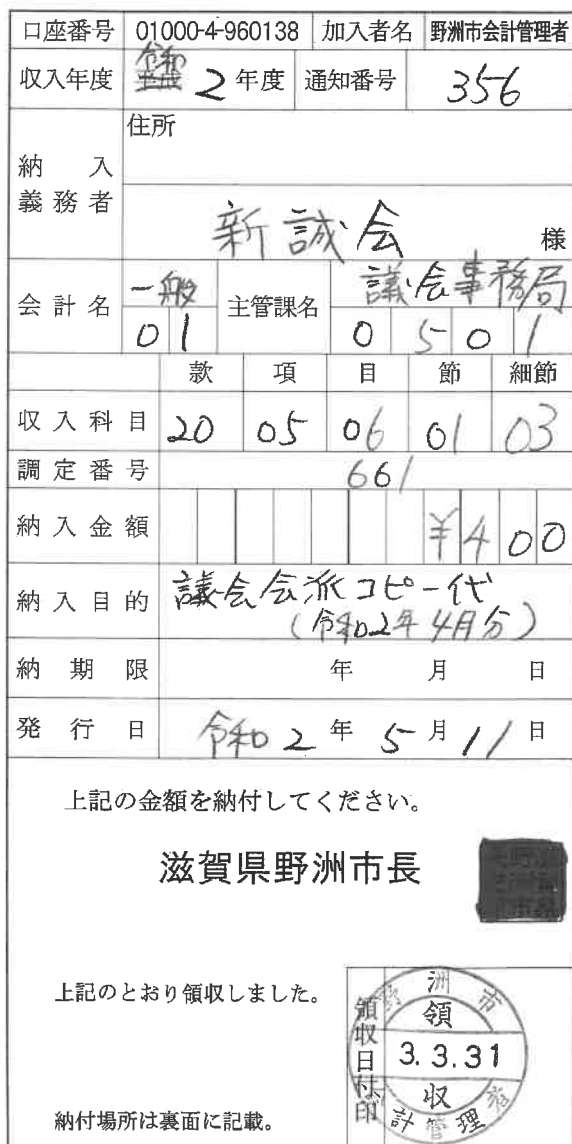 口座番号 01000-4-960138 加入者名 野洲市会計管理者
収入年度 令和 平成 2年度 通知番号 356
住所
納入義務者
新誠会 様
会計名 一般 主管課名 議会事務局
01 0501
款 項 目 節 細節
収入科目 20 05 06 01 03
調定番号 661
納入金額 ¥400
納入目的 議会会派コピー代
(令和2年4月分)
納期限 年 月 日
発行日 令和2年5月11日
上記の金額を納付してください。
滋賀県野洲市長
上記のとおり領収しました。
領収日付印
野洲市
領
3.3.31
収
計管理者
納付場所は裏面に記載。